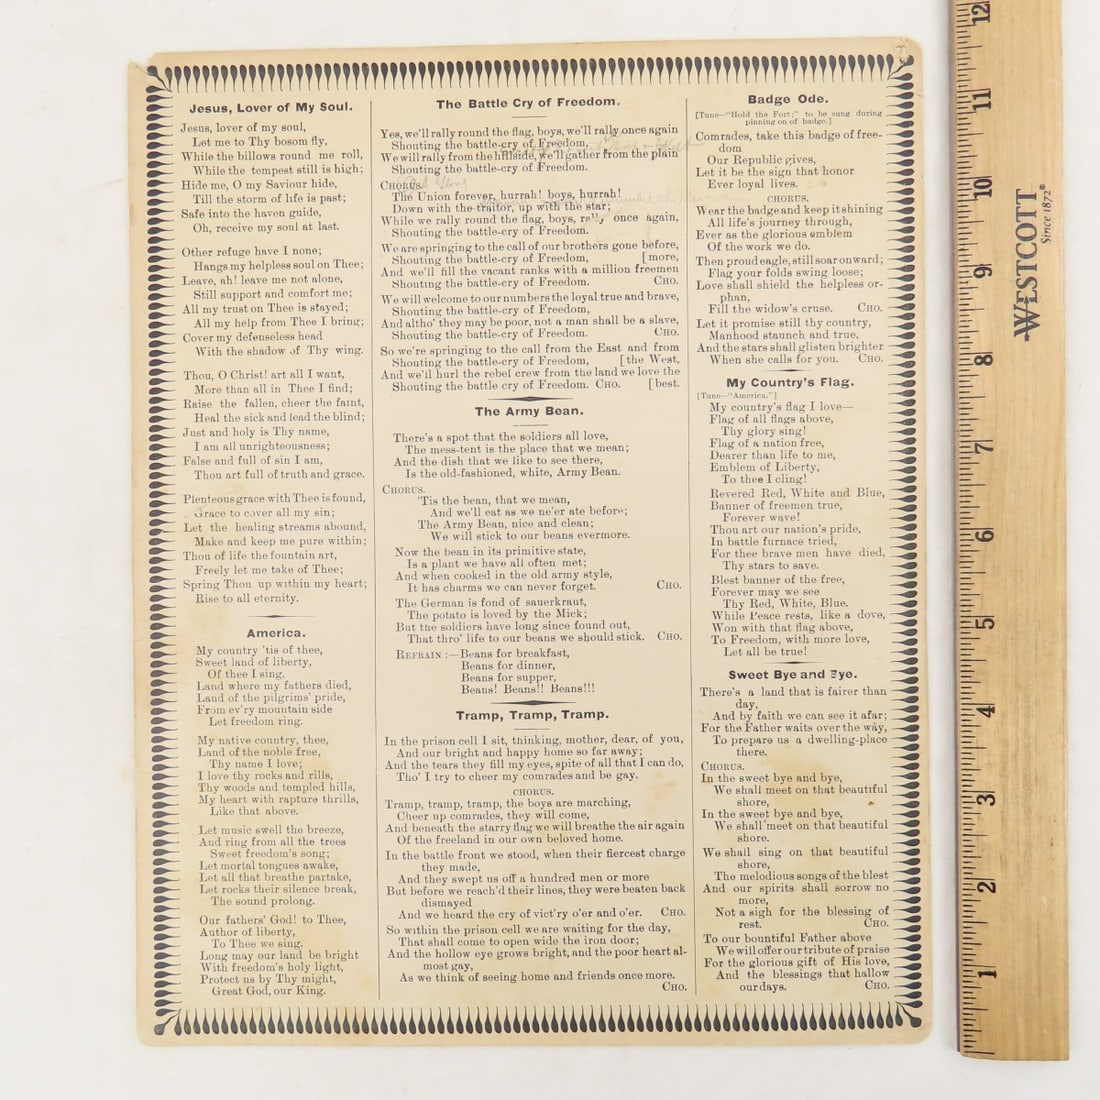 Jesus, Lover of My Soul.
Jesus, lover of my soul,
Let me to Thy bosom fly,
While the billows round me roll,
While the tempest still is high;
Hide me, O my Saviour hide,
Till the storm of life is past;
Safe into the haven guide,
Oh, receive my soul at last.
Other refuge have I none;
Hangs my helpless soul on Thee;
Leave, ah! leave me not alone,
Still support and comfort me;
All my trust on Thee is stayed;
All my help from Thee I bring;
Cover my defenseless head
With the shadow of Thy wing.
Thou, O Christ! art all I want,
More than all in Thee I find;
Raise the fallen, cheer the faint,
Heal the sick and lead the blind;
Just and holy is Thy name,
I am all unrighteousness;
False and full of sin I am,
Thou art full of truth and grace.
Plenteous grace with Thee is found,
Grace to cover all my sin;
Let the healing streams abound,
Make and keep me pure within;
Thou of life the fountain art,
Freely let me take of Thee;
Spring Thou up within my heart;
Rise to all eternity.
America.
My country 'tis of thee,
Sweet land of liberty,
Of thee I sing,
Land where my fathers died,
Land of the pilgrims' pride,
From ev'ry mountain side
Let freedom ring.
My native country, thee,
Land of the noble free,
Thy name I love;
I love thy rocks and rills,
Thy woods and templed hills,
My heart with rapture thrills,
Like that above.
Let music swell the breeze,
And ring from all the trees
Sweet freedom's song;
Let mortal tongues awake,
Let all that breathe partake,
Let rocks their silence break,
The sound prolong.
Our fathers' God! to Thee,
Author of liberty,
To Thee we sing.
Long may our land be bright
With freedom's holy light,
Protect us by Thy might,
Great God, our King.
The Battle Cry of Freedom.
Yes, we'll rally round the flag, boys, we'll rally once again
Shouting the battle-cry of Freedom,
We will rally from the hillside, we'll gather from the plain
Shouting the battle-cry of Freedom.
CHORUS.
The Union forever, hurrah! boys, hurrah!
Down with the traitor, up with the star;
While we rally round the flag, boys, rally once again,
Shouting the battle-cry of Freedom.
We are springing to the call of our brothers gone before,
Shouting the battle-cry of Freedom, [more,
And we'll fill the vacant ranks with a million freemen
Shouting the battle-cry of Freedom. CHO.
We will welcome to our numbers the loyal true and brave,
Shouting the battle-cry of Freedom,
And altho' they may be poor, not a man shall be a slave,
Shouting the battle-cry of Freedom. CHO.
So we're springing to the call from the East and from
Shouting the battle-cry of Freedom, [the West,
And we'll hurl the rebel crew from the land we love the
Shouting the battle cry of Freedom. CHO. [best.
The Army Bean.
There's a spot that the soldiers all love,
The mess-tent is the place that we mean;
And the dish that we like to see there,
Is the old-fashioned, white, Army Bean.
CHORUS.
'Tis the bean, that we mean,
And we'll eat as we ne'er ate before;
The Army Bean, nice and clean;
We will stick to our beans evermore.
Now the bean in its primitive state,
Is a plant we have all often met;
And when cooked in the old army style,
It has charms we can never forget. CHO.
The German is fond of sauerkraut,
The potato is loved by the Mick;
But the soldiers have long since found out,
That thro' life to our beans we should stick. CHO.
REFRAIN :—Beans for breakfast,
Beans for dinner,
Beans for supper,
Beans! Beans!! Beans!!!
Tramp, Tramp, Tramp.
In the prison cell I sit, thinking, mother, dear, of you,
And our bright and happy home so far away;
And the tears they fill my eyes, spite of all that I can do,
Tho' I try to cheer my comrades and be gay.
CHORUS.
Tramp, tramp, tramp, the boys are marching,
Cheer up comrades, they will come,
And beneath the starry flag we will breathe the air again
Of the freeland in our own beloved home.
In the battle front we stood, when their fiercest charge
they made,
And they swept us off a hundred men or more
But before we reach'd their lines, they were beaten back
dismayed
And we heard the cry of vict'ry o'er and o'er. CHO.
So within the prison cell we are waiting for the day,
That shall come to open wide the iron door;
And the hollow eye grows bright, and the poor heart al-
most gay,
As we think of seeing home and friends once more.
CHO.
Badge Ode.
[Tune—"Hold the Fort;" to be sung during
pinning on of badge.]
Comrades, take this badge of free-
dom
Our Republic gives,
Let it be the sign that honor
Ever loyal lives.
CHORUS.
Wear the badge and keep it shining
All life's journey through,
Ever as the glorious emblem
Of the work we do.
Then proud eagle, still soar onward;
Flag your folds swing loose;
Love shall shield the helpless or-
phan,
Fill the widow's cruse. CHO.
Let it promise still thy country,
Manhood staunch and true,
And the stars shall glisten brighter
When she calls for you. CHO.
My Country's Flag.
[Tune—"America."]
My country's flag I love—
Flag of all flags above,
Thy glory sing!
Flag of a nation free,
Dearer than life to me,
Emblem of Liberty,
To thee I cling!
Revered Red, White and Blue,
Banner of freemen true,
Forever wave!
Thou art our nation's pride,
In battle furnace tried,
For thee brave men have died,
Thy stars to save.
Blest banner of the free,
Forever may we see
Thy Red, White, Blue.
While Peace rests, like a dove,
Won with that flag above,
To Freedom, with more love,
Let all be true!
Sweet Bye and Bye.
There's a land that is fairer than
day,
And by faith we can see it afar;
For the Father waits over the way,
To prepare us a dwelling-place
there.
CHORUS.
In the sweet bye and bye,
We shall meet on that beautiful
shore,
In the sweet bye and bye,
We shall meet on that beautiful
shore.
We shall sing on that beautiful
shore,
The melodious songs of the blest
And our spirits shall sorrow no
more,
Not a sigh for the blessing of
rest. CHO.
To our bountiful Father above
We will offer our tribute of praise
For the glorious gift of His love,
And the blessings that hallow
our days. CHO.
12
11
10
9
8
7
6
5
4
3
2
1
WESTCOTT®
Since 1872